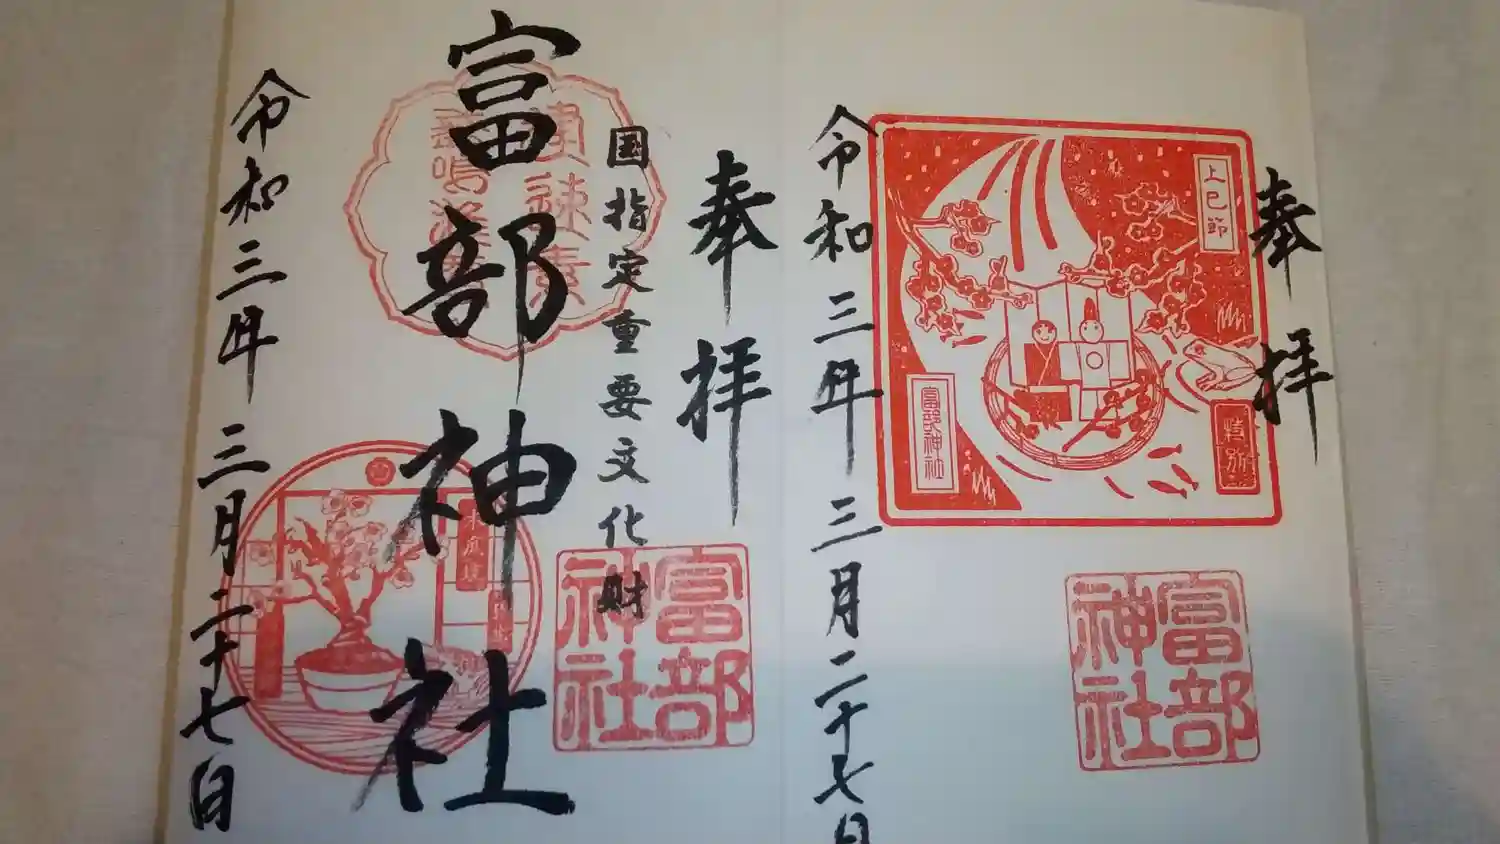 奉拝
上巳節
特別
富部神社
富部神社
令和三年三月二十七日
奉拝
国指定重要文化財
富部神社
富部神社
令和三年三月二十七日